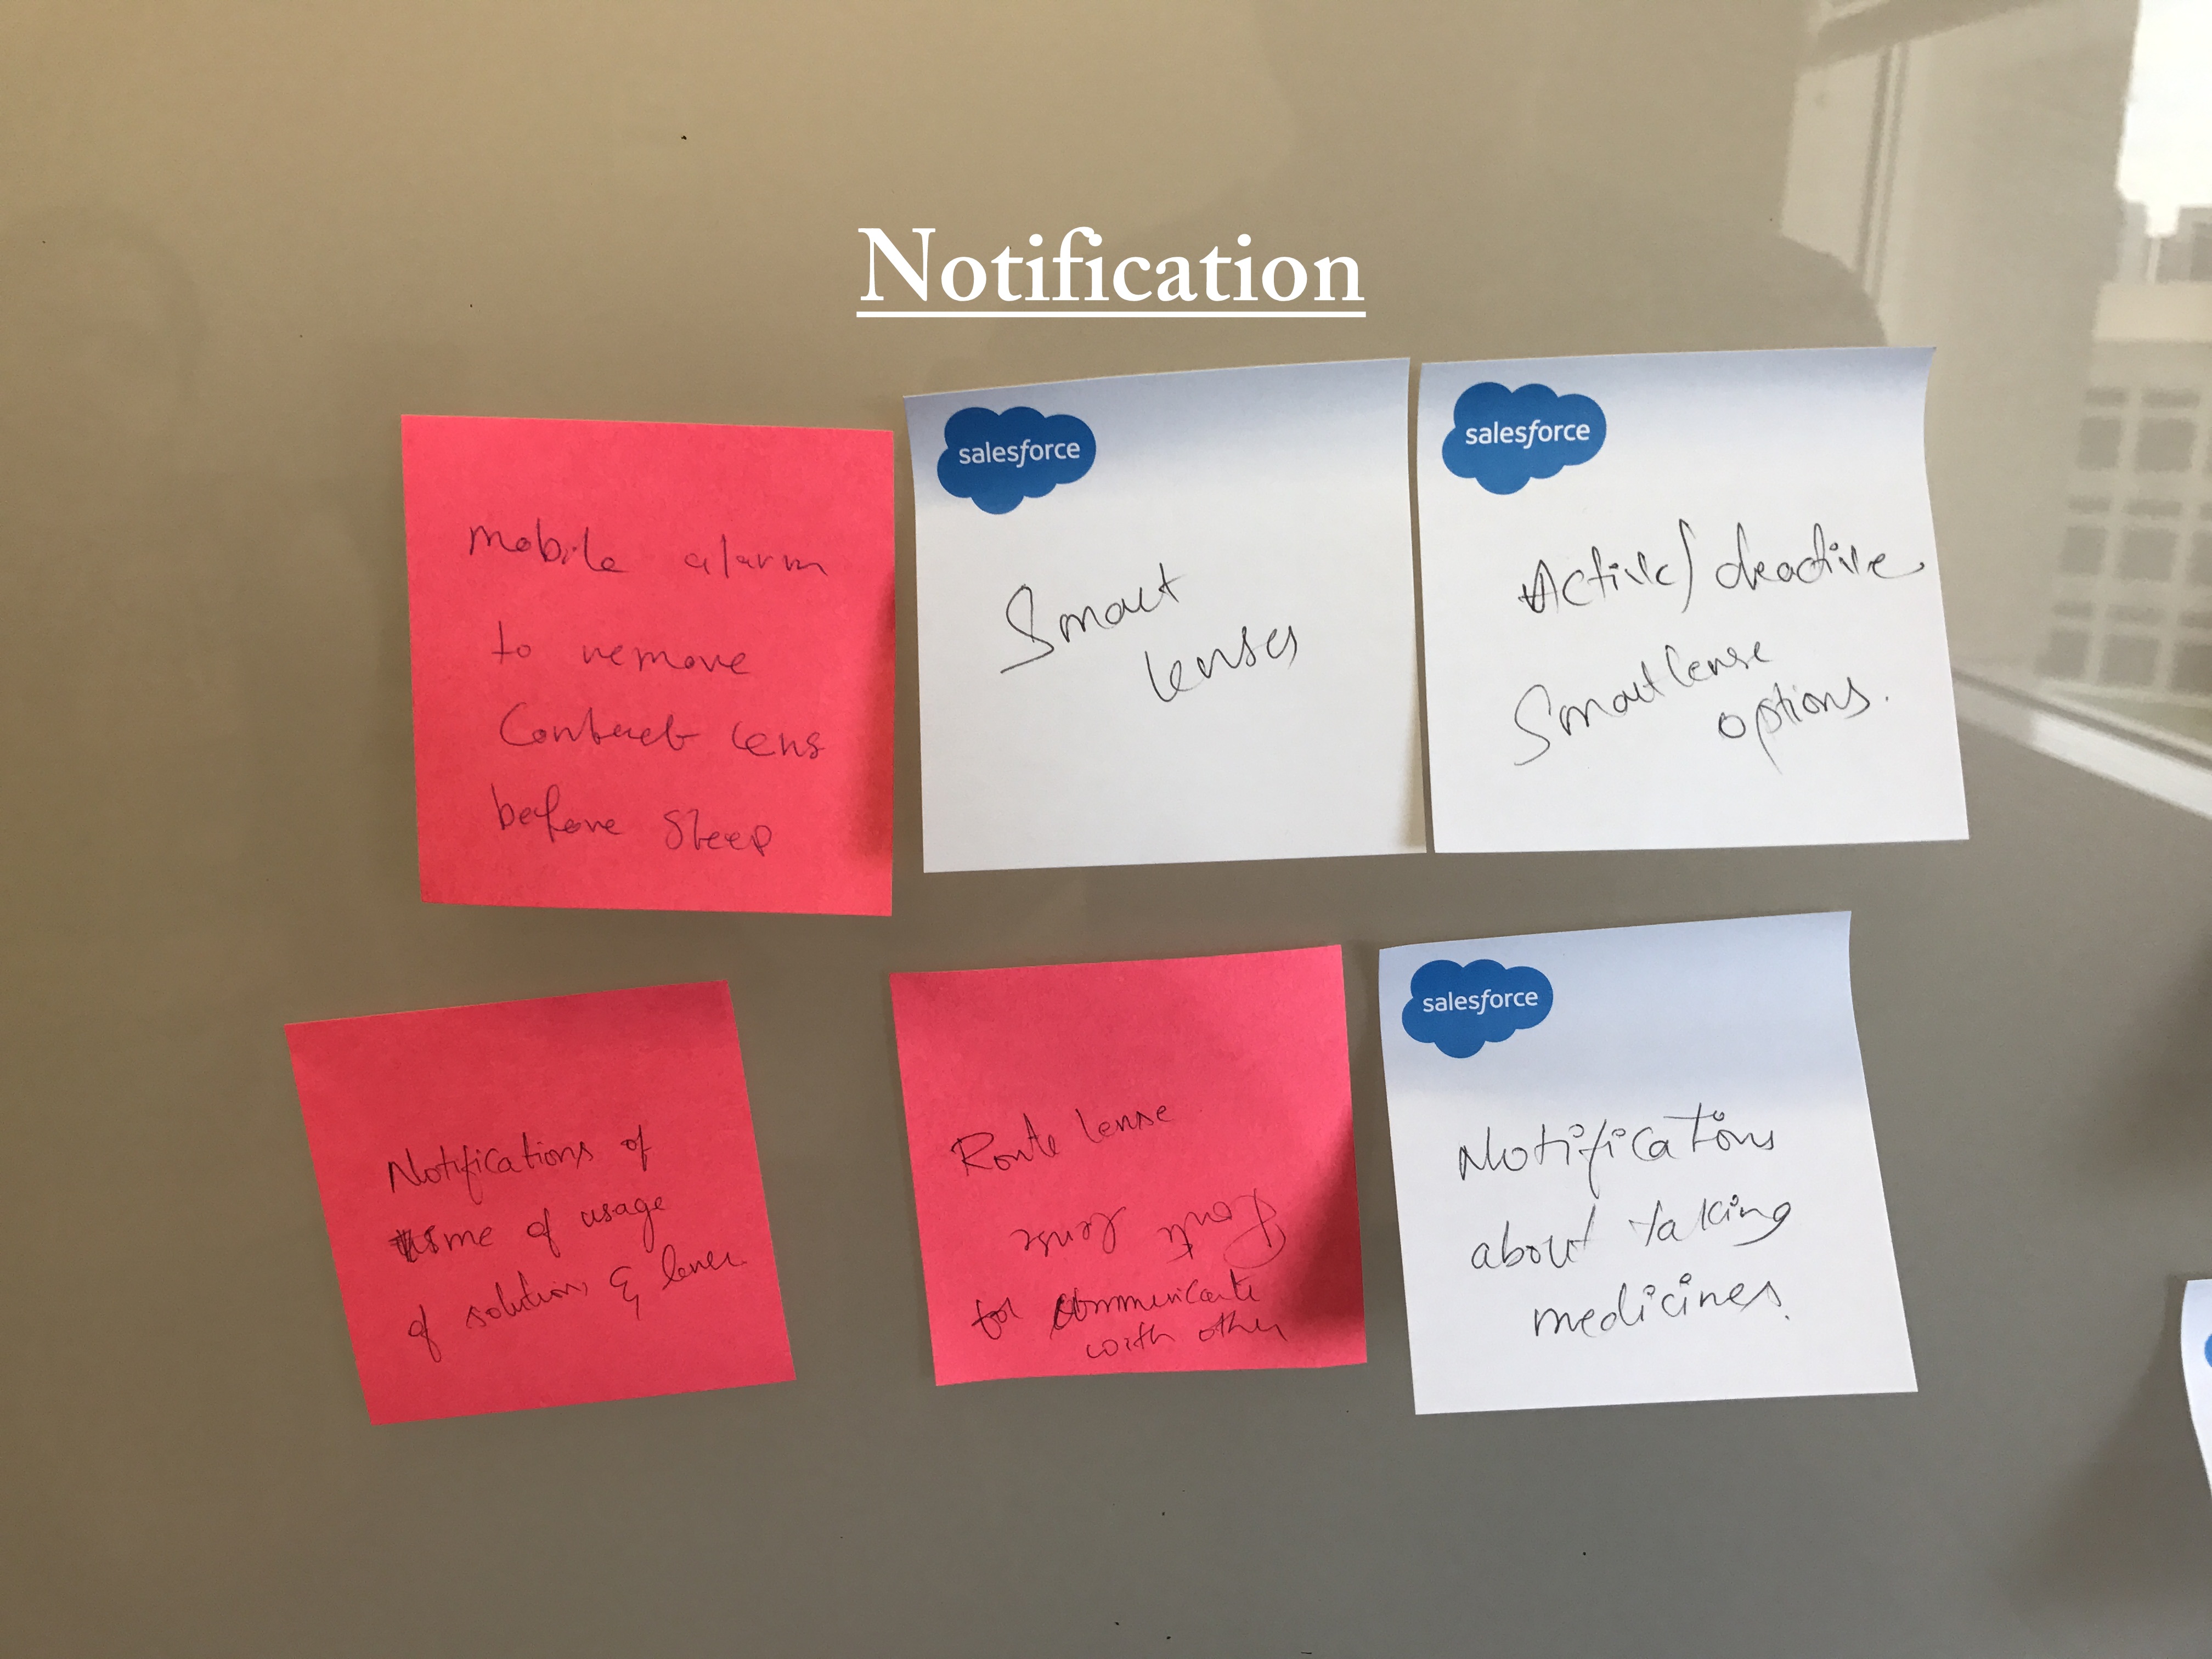 Notification
mobile alarm
to remove
Contact lens
before sleep
salesforce
Smart
lenses
salesforce
Active/deactive
Smart lense
options.
Notifications of
time of usage
of solutions &
Route lense
Route lense
for communicate
with other
salesforce
Notifications
about taking
medicines.